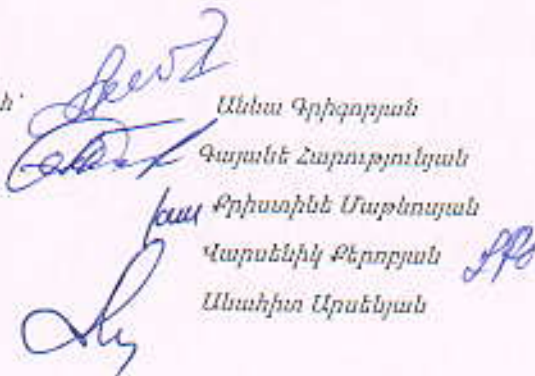 Աննա Գրիգորյան
Գայանե Հարությունյան
Քրիստինե Մաթևոսյան
Վարսենիկ Քերոբյան
Անահիտ Արսենյան